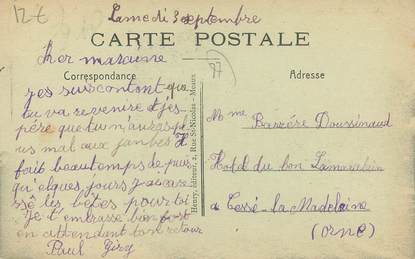 12-6
Samedi 3 septembre
CARTE POSTALE
Cher maraine
Correspondance
Adresse
97
jes suscontent que
tu va revenire et jes-
père que tu n'auras pl
us mal aux janbes il
fait beau temps de puis
qu'elques jours j'ai
sé les bêtes pour toi
je t embrasse bon fort
en attendant ton retour
Paul
Henry, éditeur, 2, Rue St-Nicolas - Meaux
Mme Barrére Doussinaud
Hotel du bon
a Tessé-la Madeleine
(Orne)